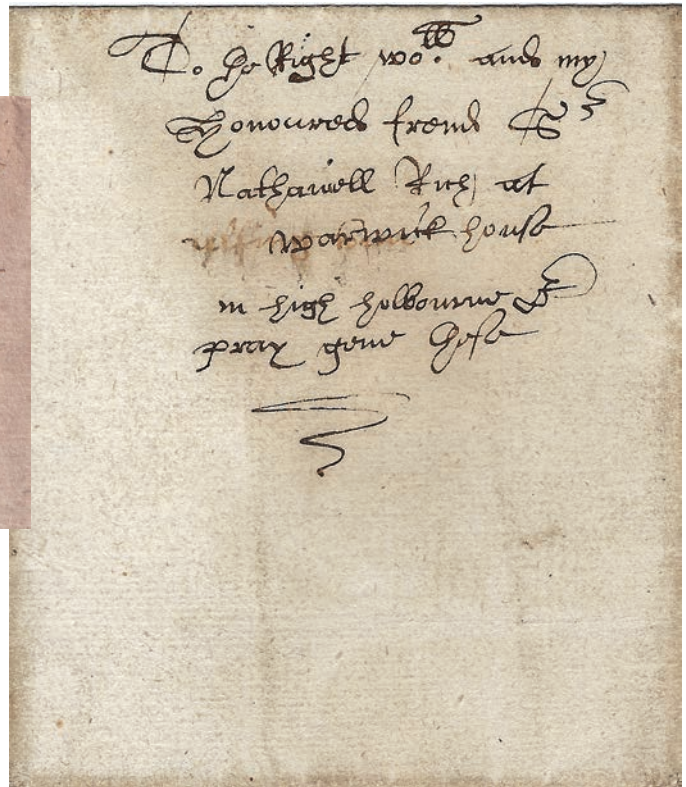 To the Right wo:ll and my
honoured frend Sr
Nathaniell Rich at
warwick house
in high holbourne I
pray geue these